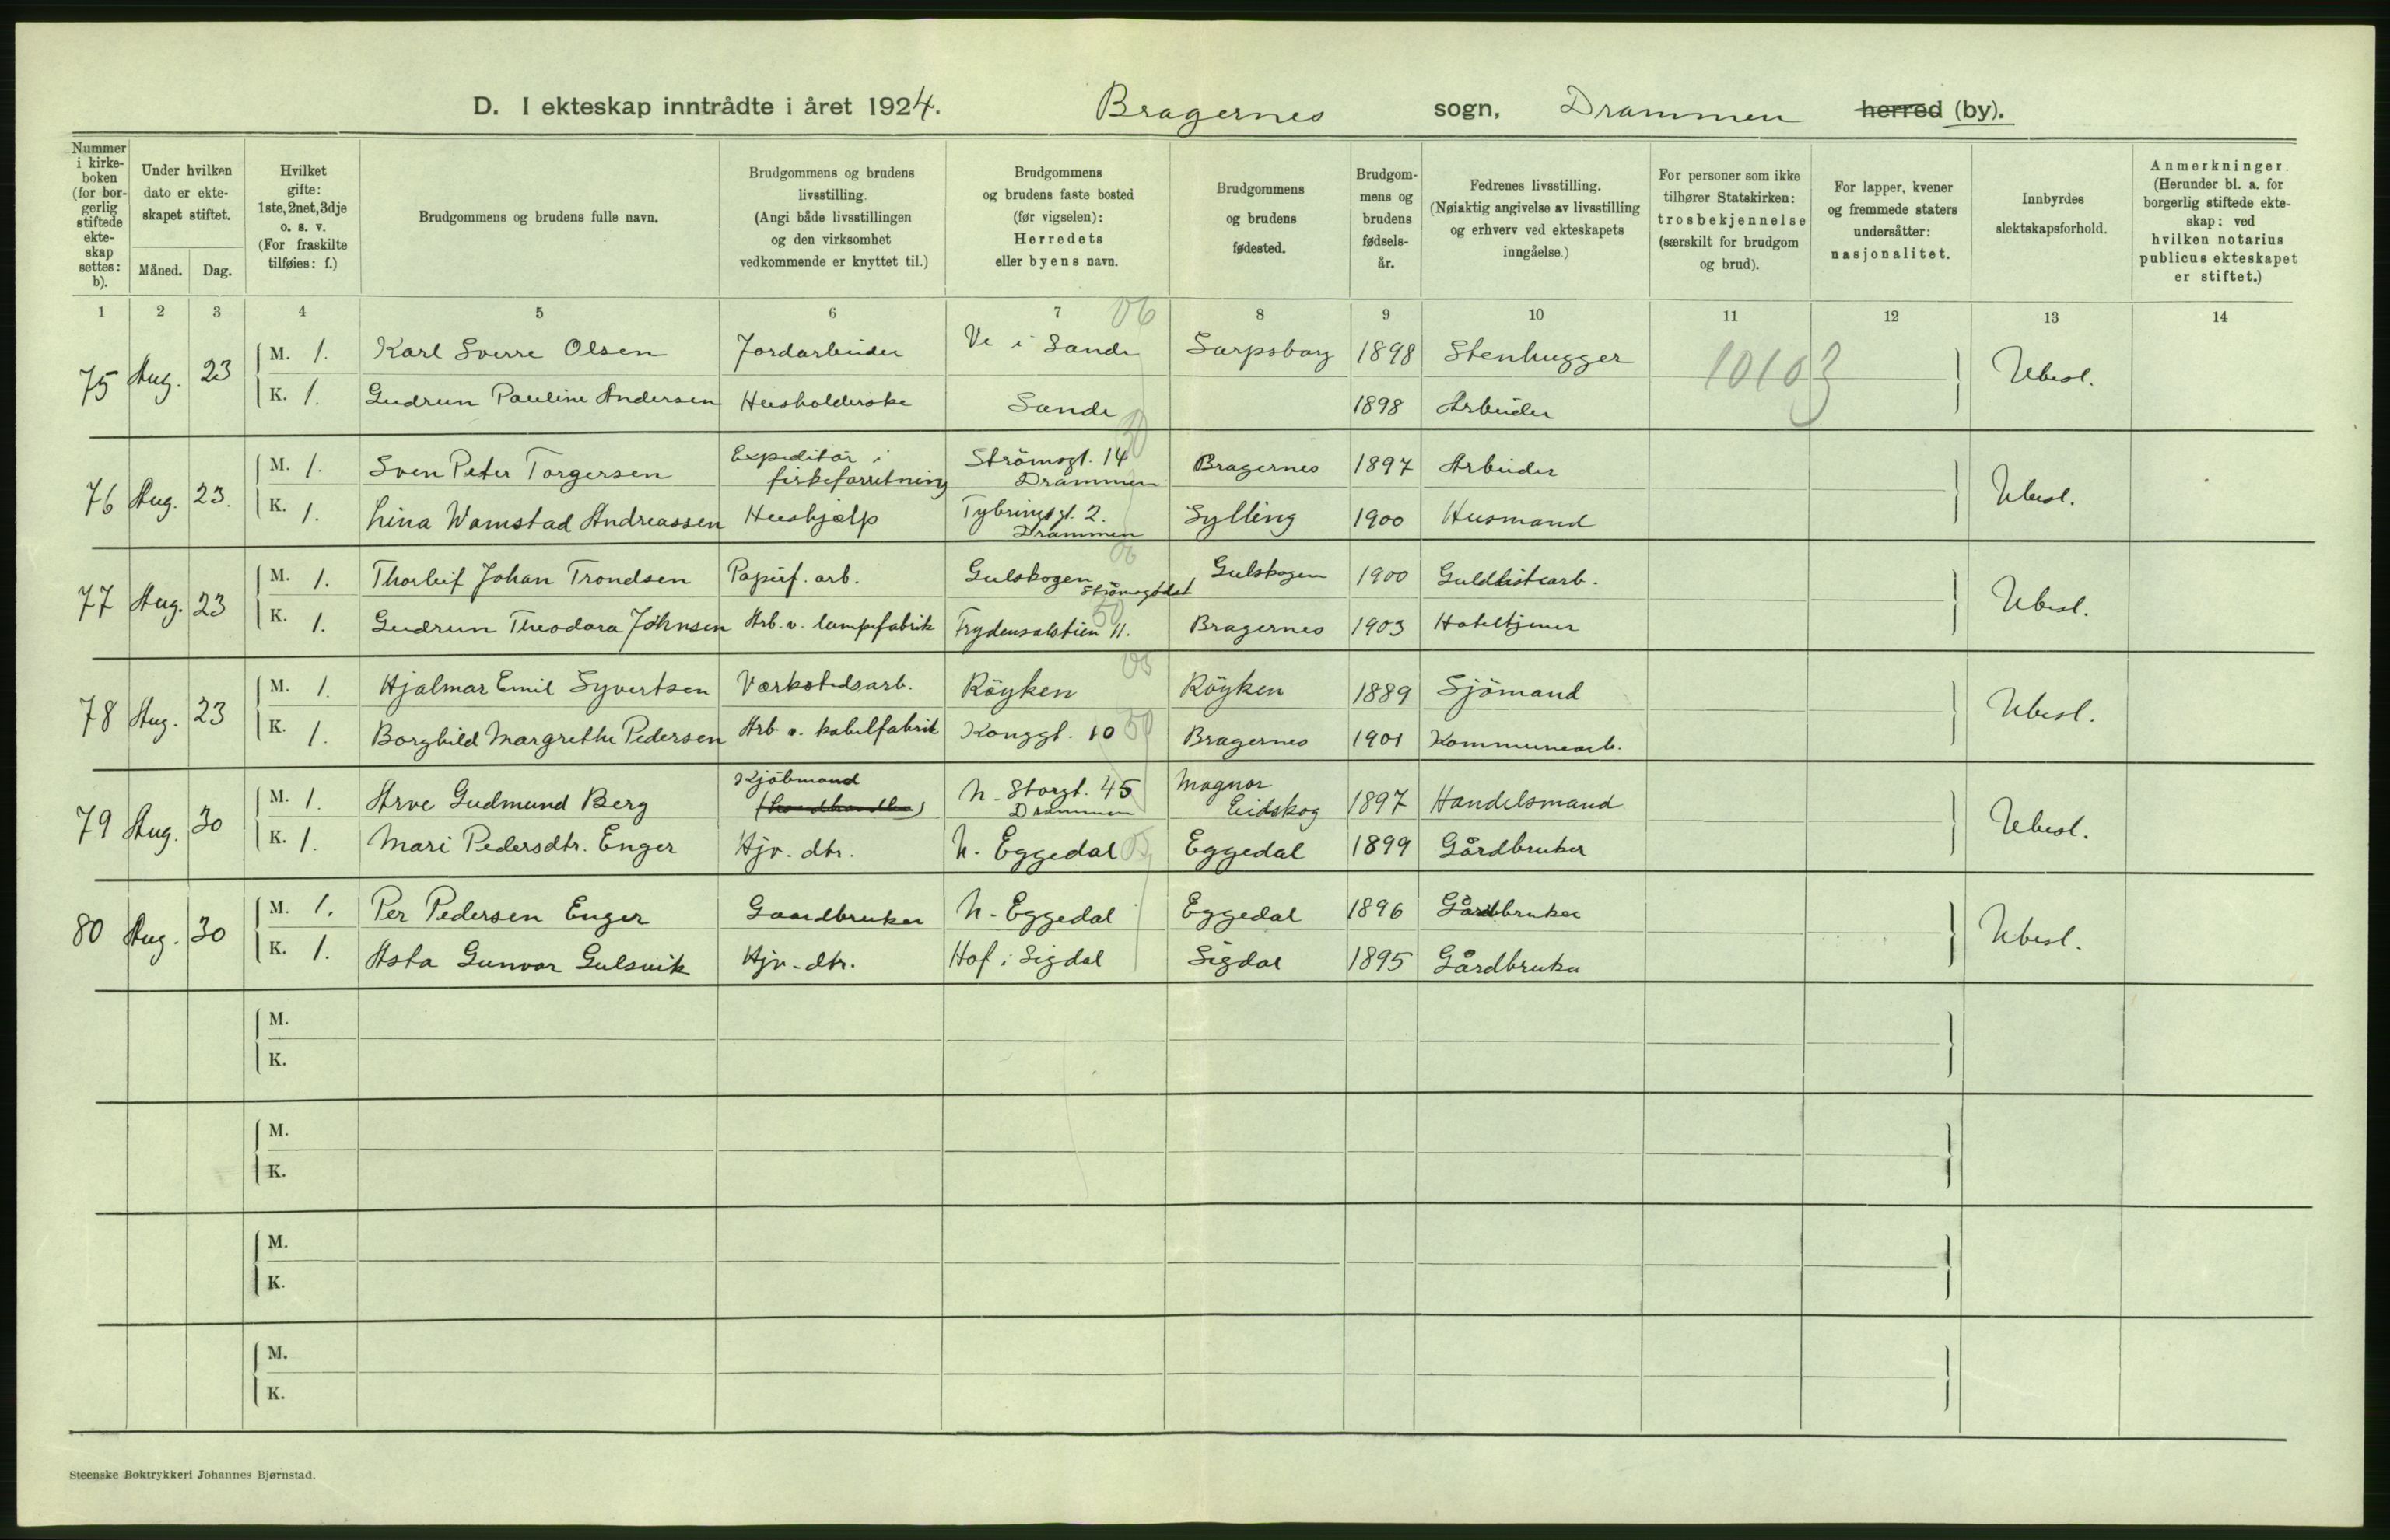 D. I ekteskap inntrådte i året 1924. Bragernes sogn, Drammen herred (by).
Nummer i kirke-boken (for bor-gerlig stiftede ekte-skap settes: b).
Under hvilken dato er ekte-skapet stiftet.
Måned. Dag.
Hvilket gifte: 1ste, 2net, 3dje o. s. v. (For fraskilte tilføies: f.)
Brudgommens og brudens fulle navn.
Brudgommens og brudens livsstilling. (Angi både livsstillingen og den virksomhet vedkommende er knyttet til.)
Brudgommens og brudens faste bosted (før vigselen): Herredets eller byens navn.
Brudgommens og brudens fødested.
Brudgom-mens og brudens fødsels-år.
Fedrenes livsstilling. (Nøiaktig angivelse av livsstilling og erhverv ved ekteskapets inngåelse.)
For personer som ikke tilhører Statskirken: trosbekjennelse (særskilt for brudgom og brud).
For lapper, kvener og fremmede staters undersåtter: nasjonalitet.
Innbyrdes slektskapsforhold.
Anmerkninger. (Herunder bl. a. for borgerlig stiftede ekte-skap: ved hvilken notarius publicus ekteskapet er stiftet.)
1 2 3 4 5 6 7 8 9 10 11 12 13 14
06
75 Aug. 23 M. 1. Karl Sverre Olsen Jordarbeider Ve i Sande Sarpsborg 1898 Stenhugger 10103 Ubesl.
K. 1. Gudrun Pauline Andersen Husholderske Sande 1898 Arbeider
30
76 Aug. 23. M. 1. Sven Peter Torgersen Expeditör i fiskeforretning Strömsgt. 14 Drammen Bragernes 1897 Arbeider Ubesl.
K. 1. Lina Wamstad Andreassen Hushjælp Tybringsgt. 2. Drammen Sylling 1900 Husmand
06
77 Aug. 23 M. 1. Thorleif Johan Trondsen Papirf. arb. Gulskogen Strömsgodset Gulskogen 1900 Guldlistearb. Ubesl.
K. 1. Gudrun Theodora Johnsen Arb. v. lampefabrik Frydensalstien 11. 50 Bragernes 1903 Hoteltjener
05
78 Aug. 23 M. 1. Hjalmar Emil Syvertsen Værkstedsarb. Röyken Röyken 1889 Sjömand Ubesl.
K. 1. Borghild Margrethe Pedersen Arb. v. kabelfabrik Konggt. 10 50 Bragernes 1901 Kommunearb.
79 Aug. 30 M. 1. Arve Gudmund Berg Kjöbmand (landhandler) N. Storgt. 45 Drammen Magnor Eidskog 1897 Handelsmand Ubesl.
K. 1. Mari Pedersdtr. Enger Hjv. dtr. N. Eggedal 05 Eggedal 1899 Gårdbruker
80 Aug. 30 M. 1. Per Pedersen Enger Gaardbruker N. Eggedal Eggedal 1896 Gårdbruker Ubesl.
K. 1. Asta Gunvor Gulsvik Hjv. dtr. Hof i Sigdal Sigdal 1895 Gårdbruker
M.
K.
M.
K.
M.
K.
M.
K.
Steenske Boktrykkeri Johannes Bjørnstad.